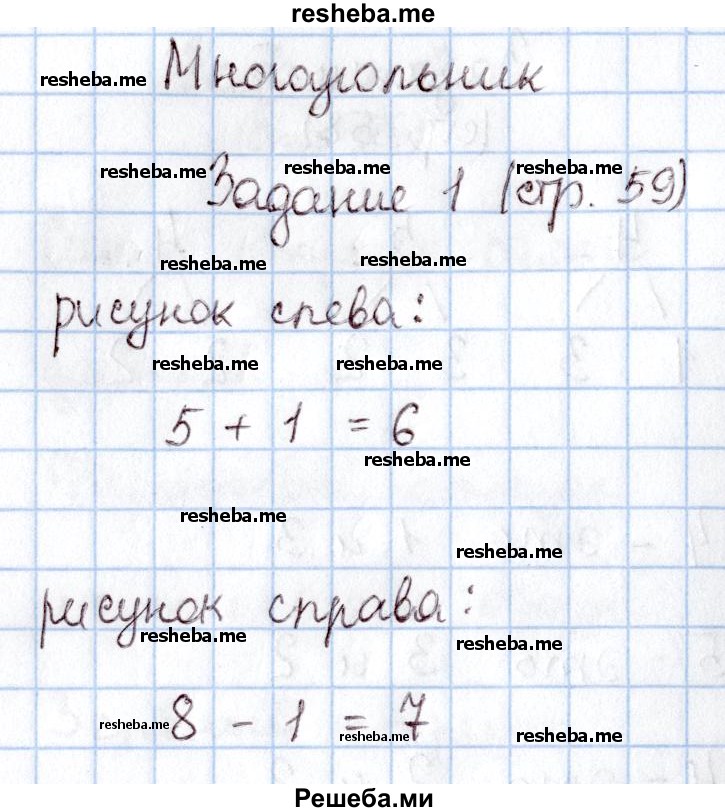 resheba.me
resheba.me Многоугольник
resheba.me resheba.me resheba.me
Задание 1 (стр. 59)
resheba.me resheba.me
рисунок слева:
resheba.me resheba.me
5 + 1 = 6
resheba.me
resheba.me
resheba.me
рисунок справа:
resheba.me resheba.me
8 - 1 = 7
resheba.me resheba.me resheba.me
Решеба.ми